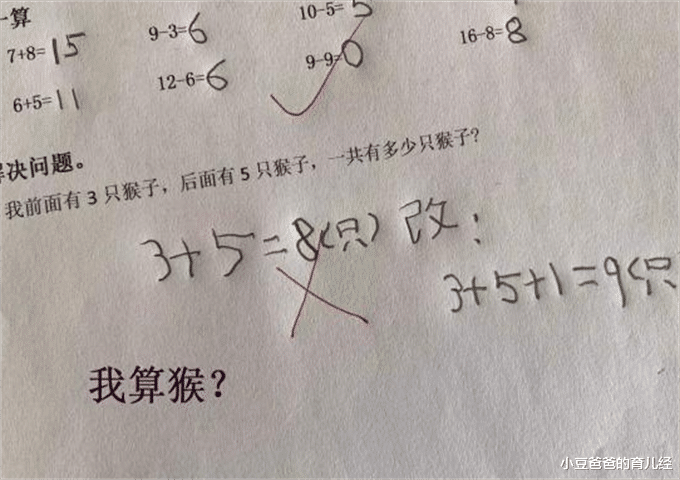 一算
7+8=15
9-3=6
10-5=5
16-8=8
6+5=11
12-6=6
9-9=0
解决问题。
我前面有 3 只猴子，后面有 5 只猴子，一共有多少只猴子？
3+5=8(只) 改：
3+5+1=9(只
我算猴？
小豆爸爸的育儿经